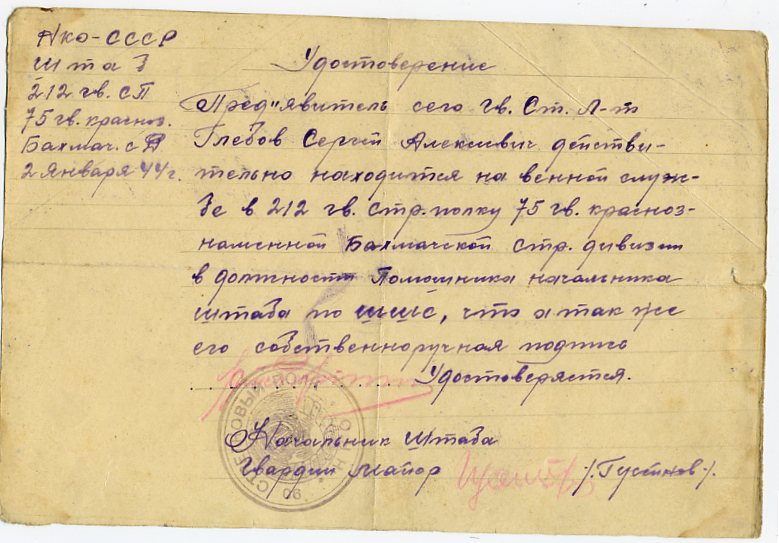 НКО-СССР
Штаб
212 гв. СП
75 гв. красноз.
Бахмач. сД
2 Января 44 г.
Удостоверение
Пред"явитель сего гв. Ст. Л-т
Глебов Сергей Алексеевич действи-
тельно находится на венной служ-
бе в 212 гв. стр. полку 75 гв. красноз-
наменной Бахмачской стр. дивизии
в должности Помошника начальника
штаба по ШШС, что а так же
его собственноручная подпись
Удостоверяется.
Начальник Штаба
Гвардии Майор /.Густнов./
СТРЕЛКОВЫЙ ПОЛК